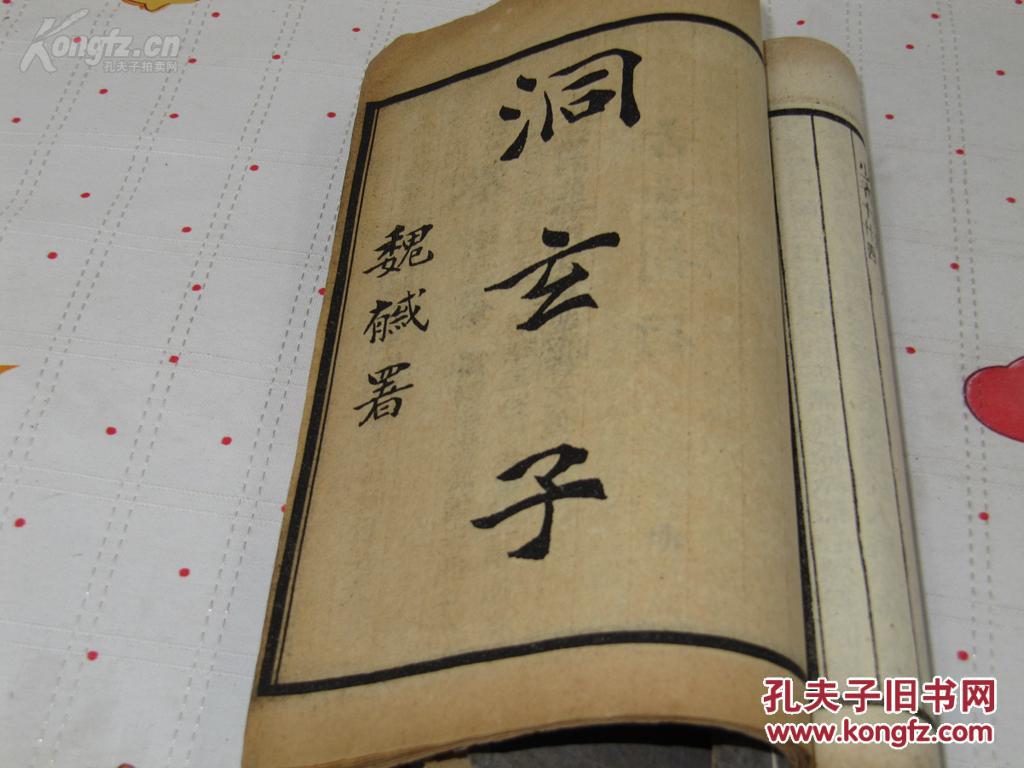 Kongfz.cn
孔夫子拍卖网
洞玄子
魏戫署
孔夫子旧书网
www.kongfz.com